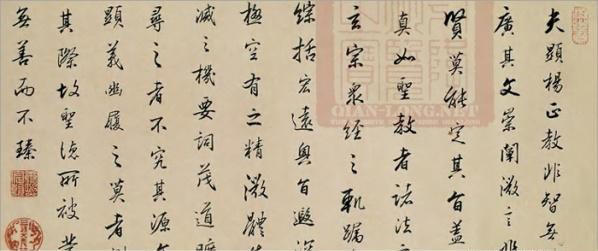 夫顯楊正教非智無
廣其文崇闡微言非
賢莫能定其旨盖
真如聖教者諸法之
玄宗衆經之軌躅
綜括宏遠奧旨遐深
極空有之精微體生
滅之機要詞茂道曠
尋之者不究其源文
顯義幽履之莫者測
其際故聖德所被業
無善而不臻
QIAN-LONG.NET